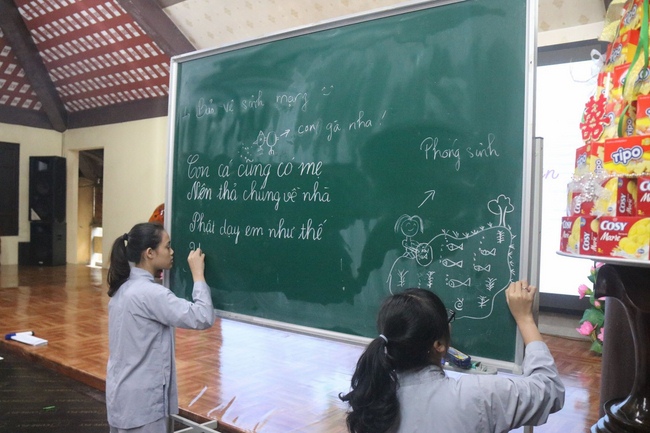 Bảo vệ sinh mạng
con gà nha!
Con cá cũng có mẹ
Nên thả chúng về nhà
Phải dạy em như thế
Phóng sinh
TIPO
TIPO
COSY
COSY
Marie
COSY
Marie